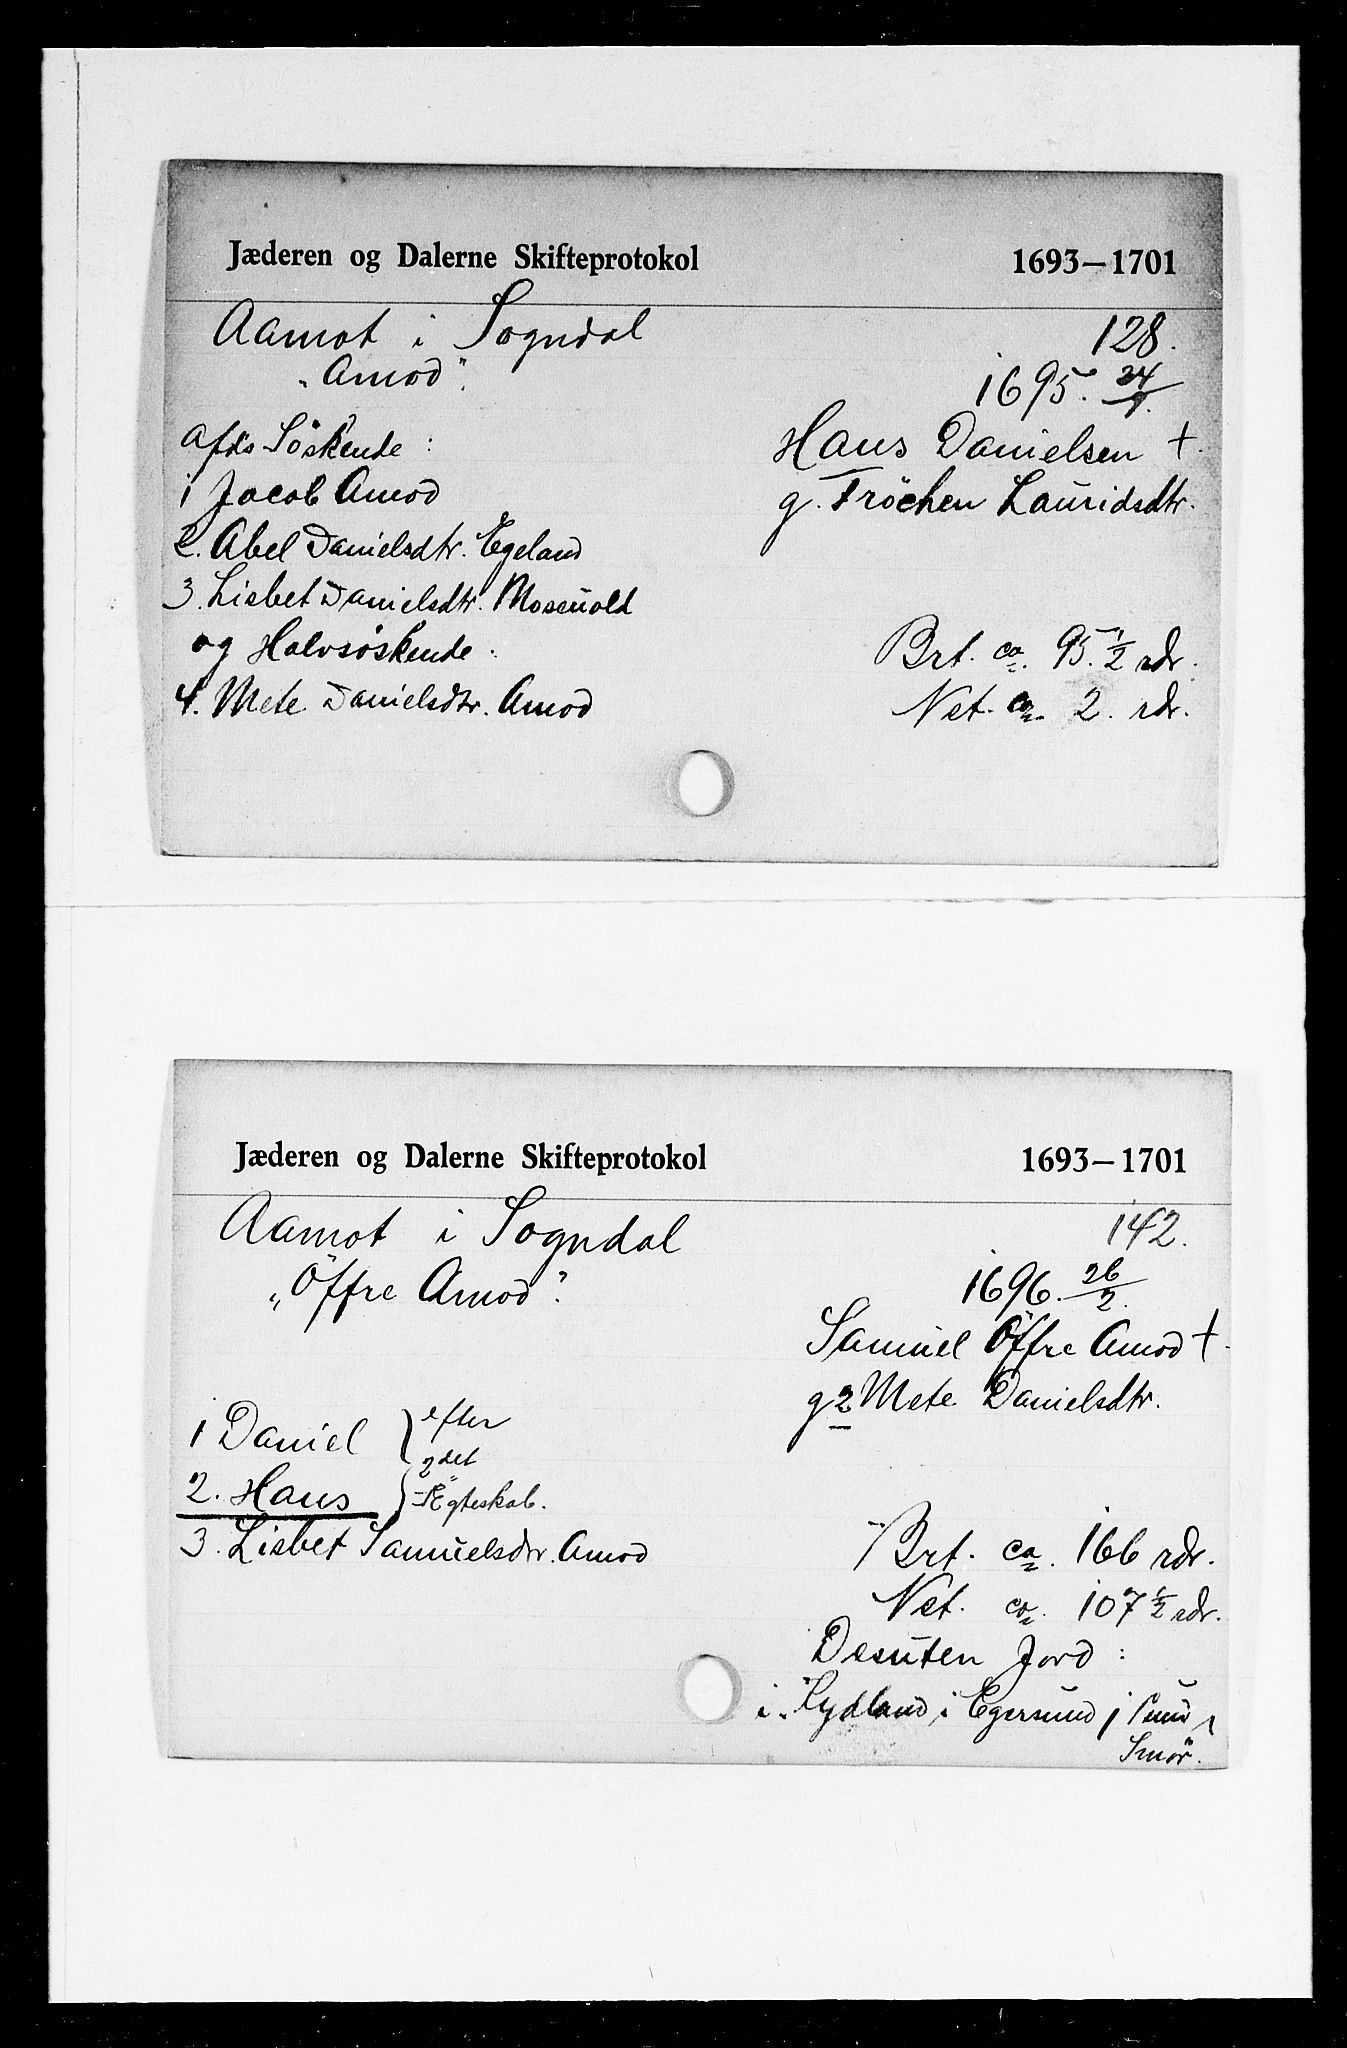 Jæderen og Dalerne Skifteprotokol 1693–1701
Aamot i Sogndal 128.
"Amod". 1695. 24/9.
Afd's Söskende: Hans Danielsen †.
1 Jacob Amod g. Tröchen Lauridsdtr.
2. Abel Danielsdtr. Egeland
3. Lisbet Danielsdtr. Mosevold
og Halvsöskende: Brt. ca. 95. 1/2 rdr.
4. Mete Danielsdtr. Amod Net. ca. 2. rdr.
Jæderen og Dalerne Skifteprotokol 1693–1701
Aamot i Sogndal 142.
"Öffre Amod". 1696. 26/2.
Samuel Öffre Amod †.
g 2 Mete Danielsdtr.
1 Daniel } efter
2det
2. Hans } Ægteskab.
3. Lisbet Samuelsdtr. Amod
Brt. ca. 166 rdr.
Net. ca. 107 1/2 rdr.
Desuten Jord:
i "Lydland" i Egersund 1 Pund
Smör.